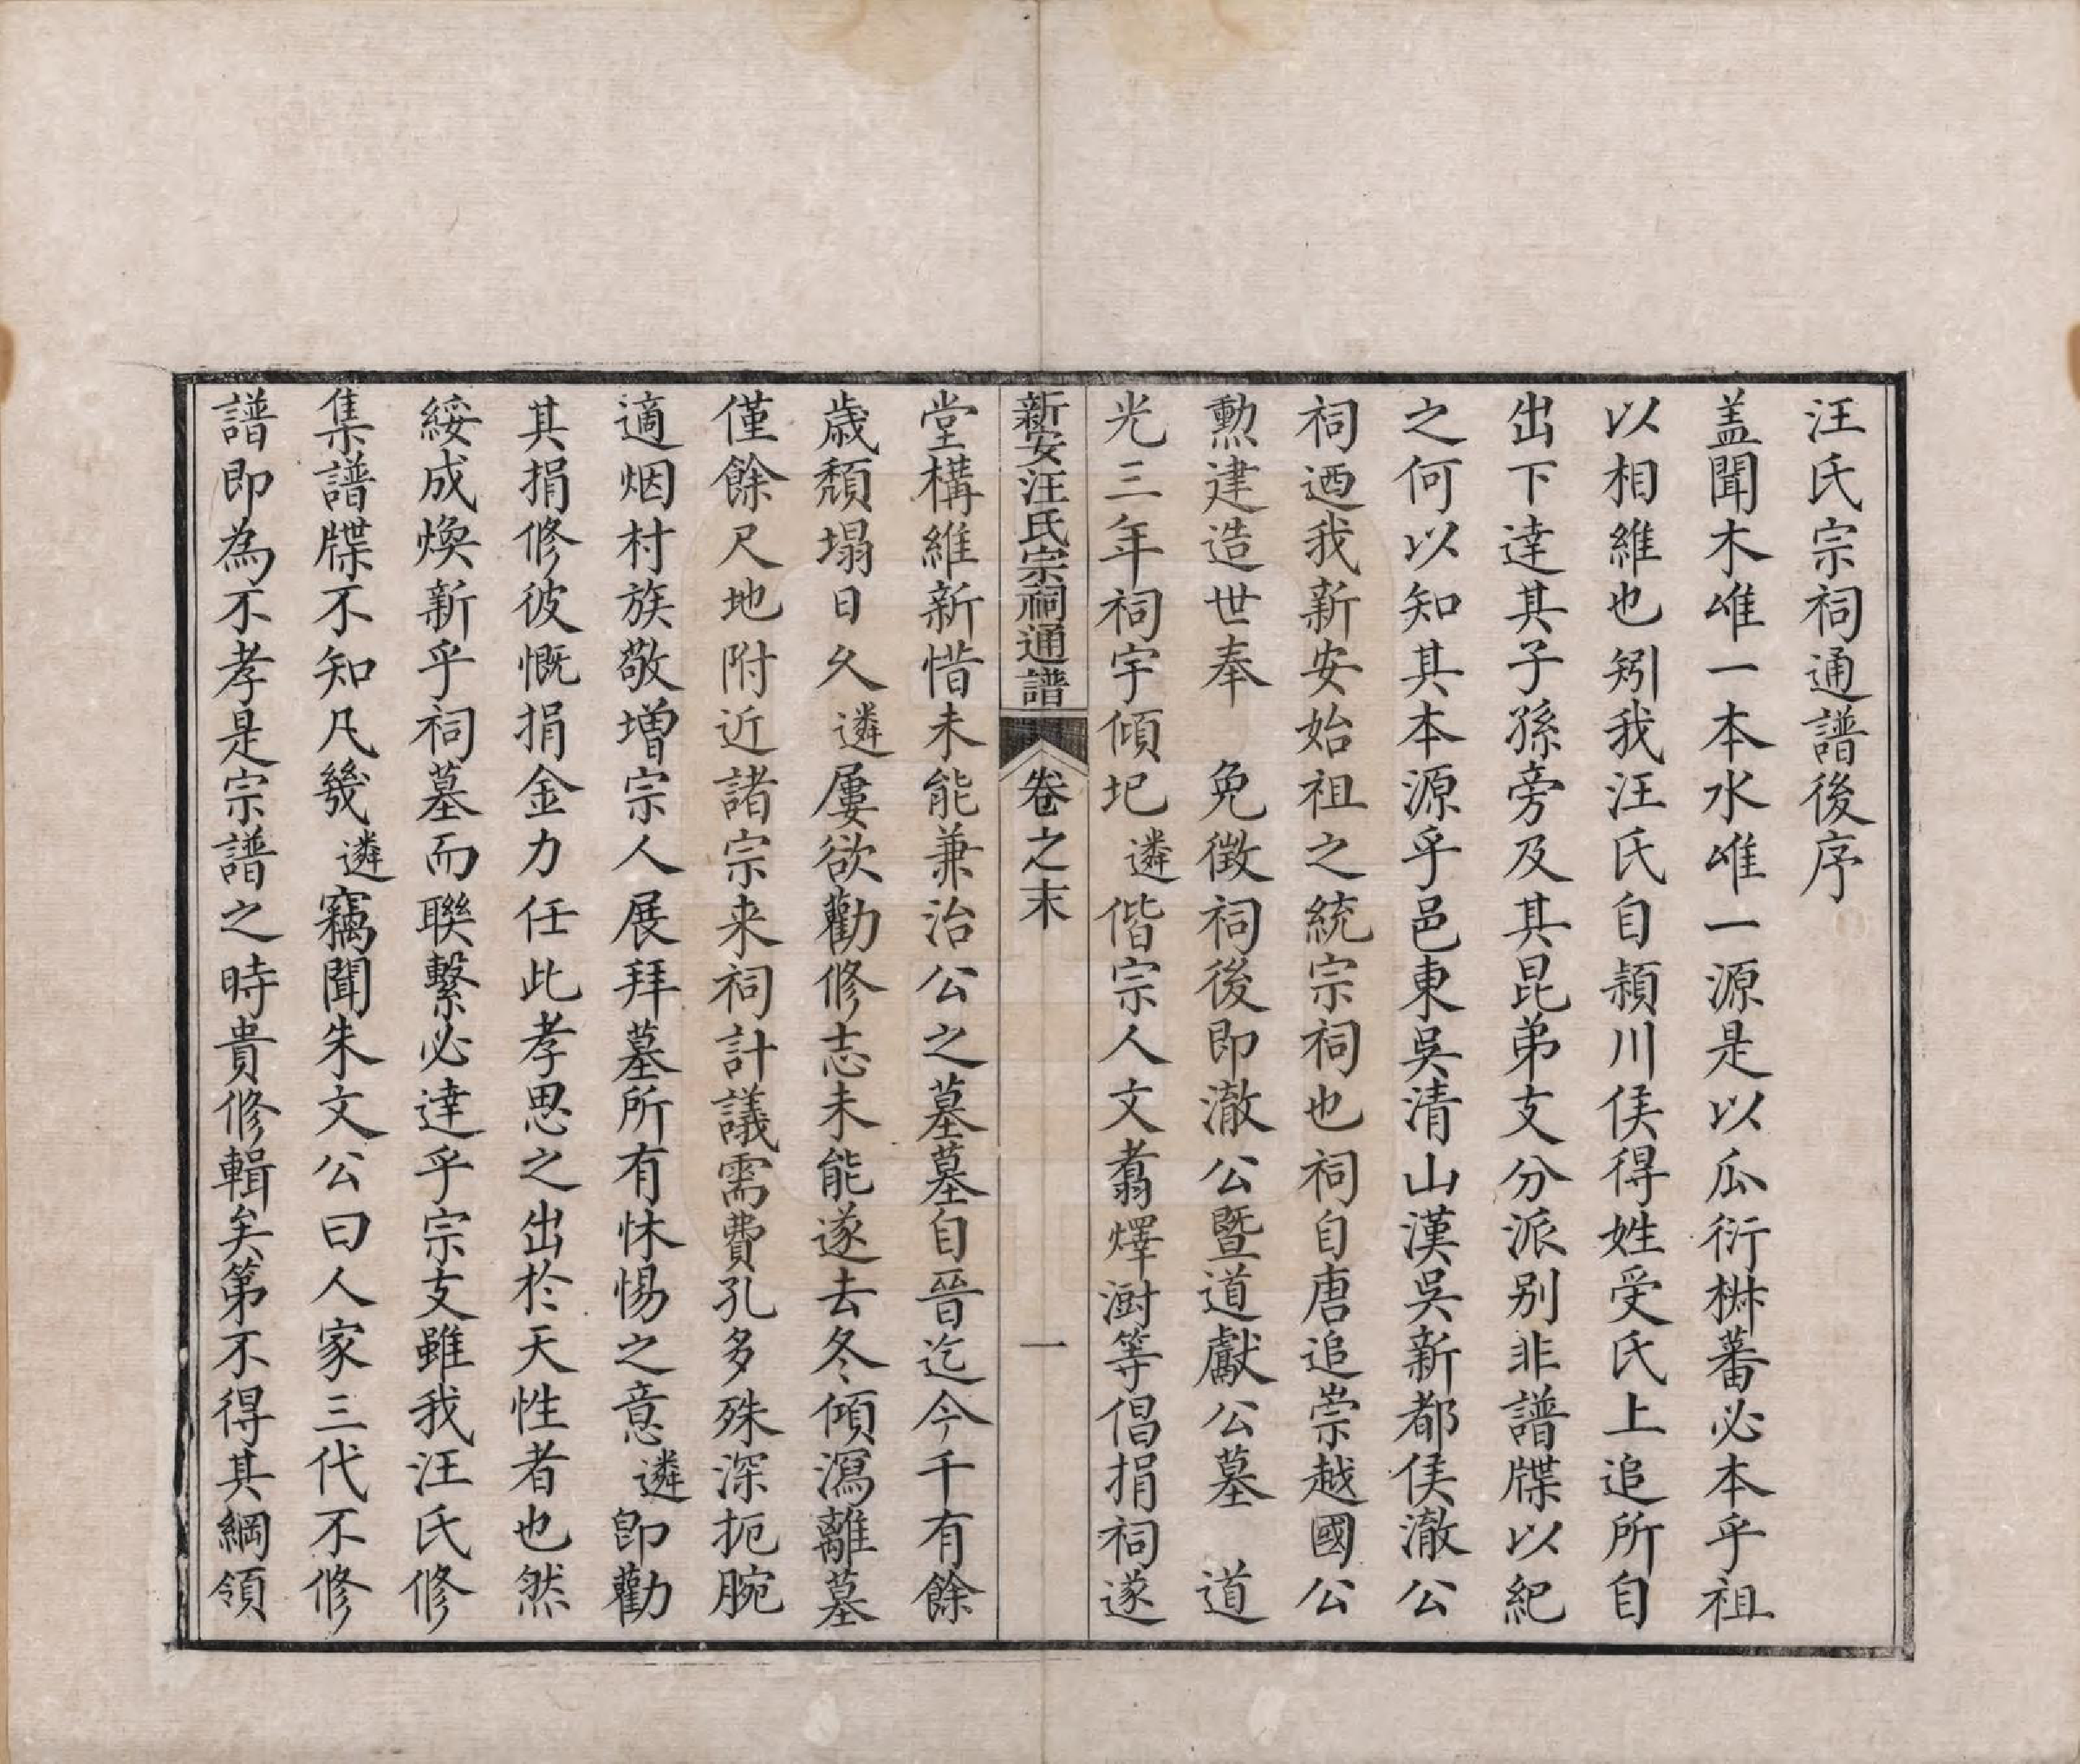 汪氏宗祠通譜後序
盖聞木唯一本水唯一源是以瓜衍椒蕃必本乎祖
以相維也矧我汪氏自潁川侯得姓受氏上追所自
出下達其子孫旁及其昆弟支分派别非譜牒以紀
之何以知其本源乎邑東吳清山漢吳新都侯澈公
祠迺我新安始祖之統宗祠也祠自唐追崇越國公
勲建造世奉　免徵祠後即澈公暨道獻公墓　道
光三年祠宇傾圮遴偕宗人文翥燡澍等倡捐祠遂
新安汪氏宗祠通譜　卷之末　一
堂構維新惜未能兼治公之墓墓自晉迄今千有餘
歲頹塌日久遴屢欲勸修志未能遂去冬傾瀉離墓
僅餘尺地附近諸宗来祠計議需費孔多殊深扼腕
適烟村族敬增宗人展拜墓所有怵惕之意遴即勸
其捐修彼慨捐金力任此孝思之出於天性者也然
綏成煥新乎祠墓而聯繫必達乎宗支雖我汪氏修
集譜牒不知凡幾遴竊聞朱文公曰人家三代不修
譜即為不孝是宗譜之時貴修輯矣第不得其綱領